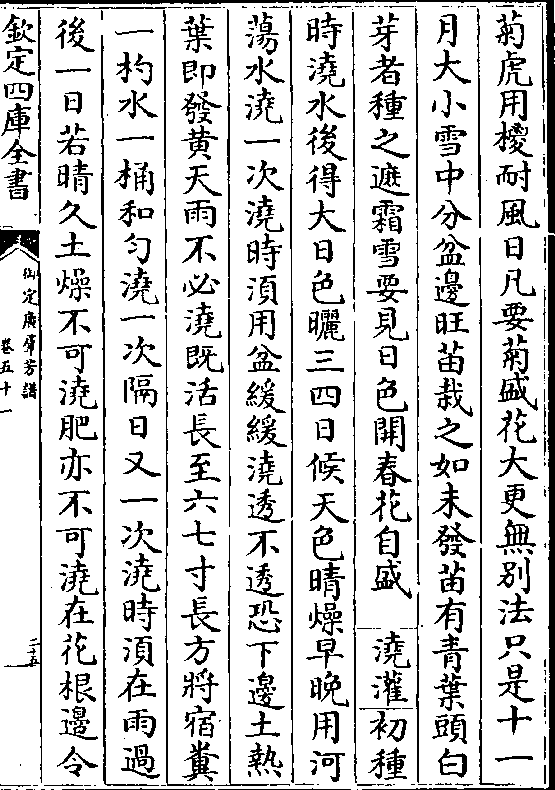 菊虎用㮨耐風日凡要菊盛花大更無別法只是十一
月大小雪中分盆邊旺苗栽之如未發苗有青葉頭白
芽者種之遮霜雪要見日色開春花自盛　澆灌初種
時澆水後得大日色曬三四日候天色晴燥早晚用河
蕩水澆一次澆時須用盆緩緩澆透不透恐下邊土熱
葉即發黄天雨不必澆既活長至六七寸長方將宿糞
一杓水一桶和匀澆一次隔日又一次澆時須在雨過
後一日若晴久土燥不可澆肥亦不可澆在花根邊令
欽定四庫全書
御定廣羣芳譜
卷五十一
二十五